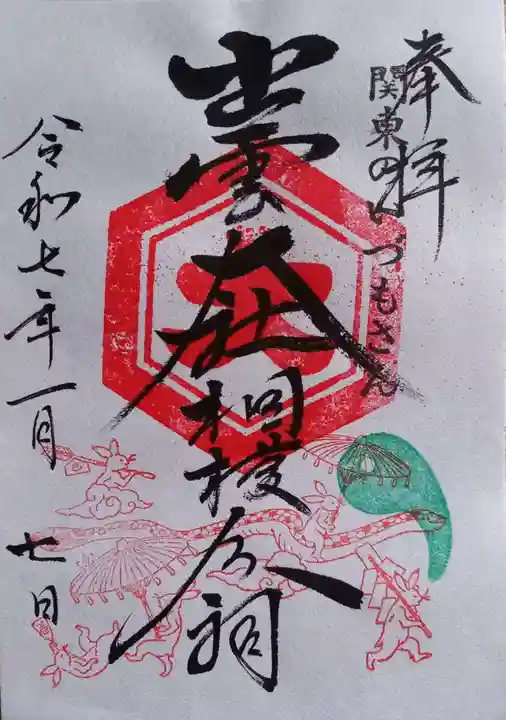 奉拝
関東のいづもさん
出雲大社相模分祠
大
令和七年一月
七日